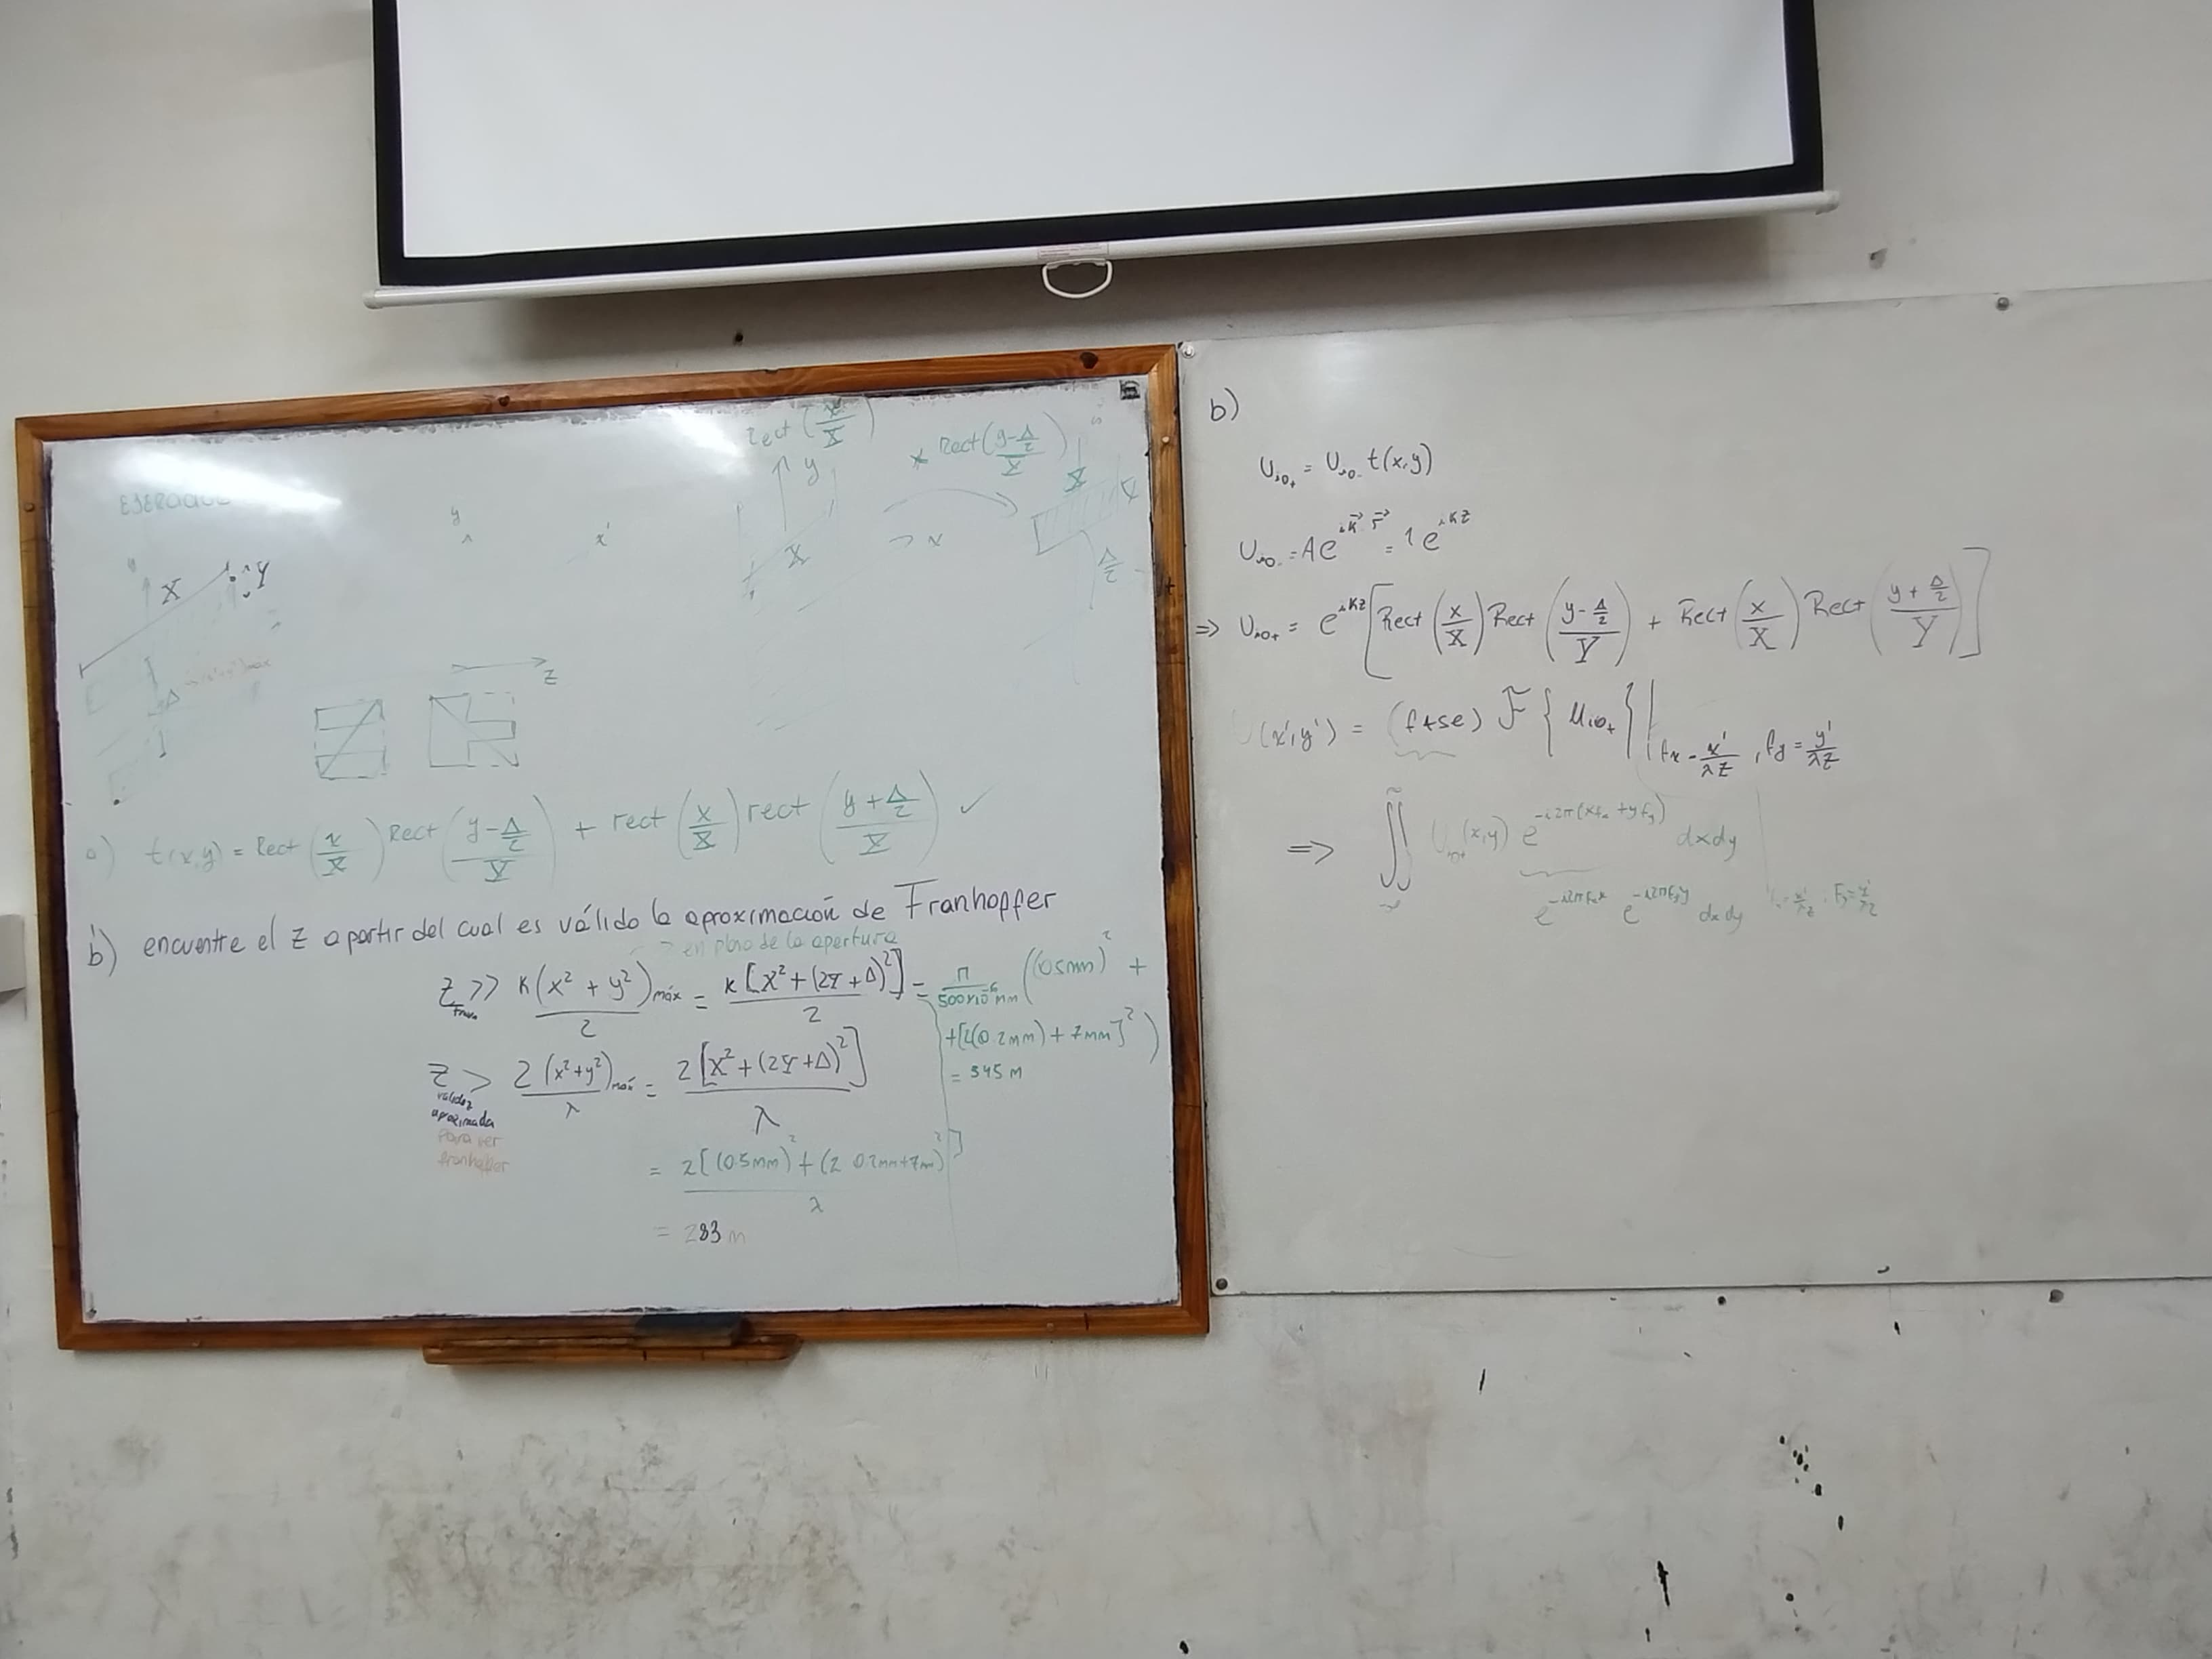 EJERCICIO
Rect (x/X)
* Rect(y-Δ/2 / X)
y
x
X
Δ/2
y
x'
X
Y
Δ
z
a) t(x,y) = Rect (x/X) Rect (y-Δ/2 / Y) + rect (x/X) rect (y+Δ/2 / Y) ✓
b) encuentre el z apartir del cual es válido la aproximación de Franhopfer
en plano de la apertura
Z >> K(x² + y²)máx / 2 = K[X² + (2Y+Δ)²] / 2 = π / 500x10⁻⁶mm ((0.5mm)² +
+[2(0.2mm) + 7mm]²)
= 345 m
Z > 2 (x²+y²)máx / λ = 2[X² + (2Y+Δ)²] / λ
validez
aproximada
Para ver
franhofer
= 2[(0.5mm)² + (2 0.2mm+7m)²] / λ
= 283 m
b)
U_{i0+} = U_{i0-} t(x,y)
U_{i0-} = A e^{i k⃗ r⃗} = 1 e^{iKZ}
=> U_{i0+} = e^{iKZ} [Rect (x/X) Rect (y-Δ/2 / Y) + Rect (x/X) Rect (y+Δ/2 / Y)]
U(x',y') = (fase) F { U_{i0+} } | fx = x'/λZ , fy = y'/λZ
=> ∬ U_{i0+}(x,y) e^{-i2π(xfx + yfy)} dxdy
e^{-i2πfxx} e^{-i2πfyy} dxdy fx=x'/λz , Fy=y'/λz